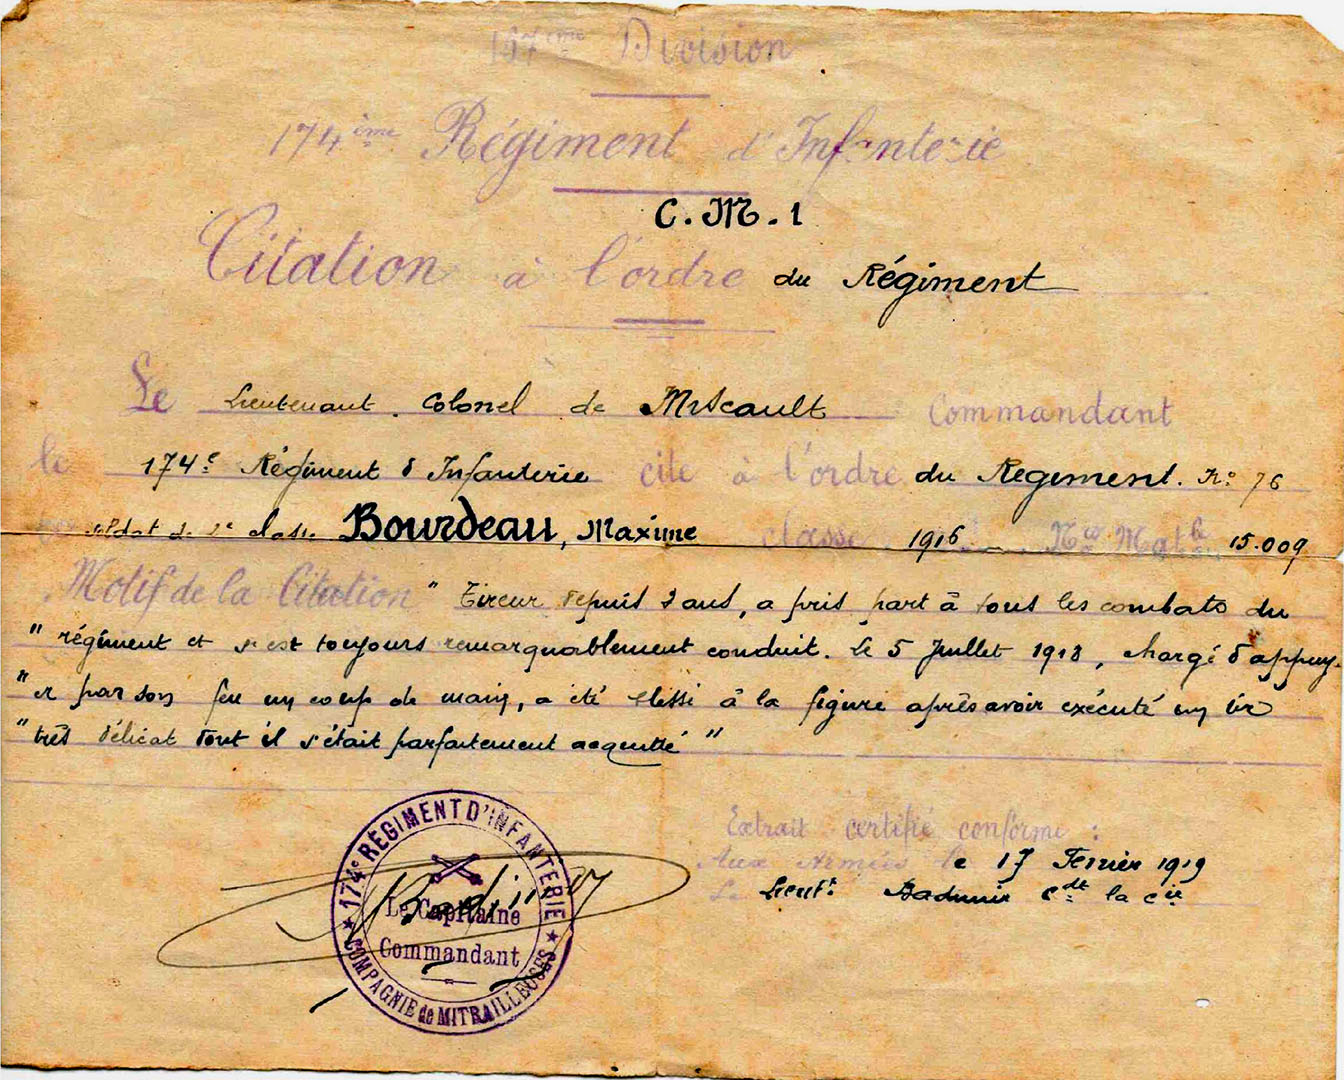 Division
174ème Régiment d'Infanterie
C. M. 1
Citation à l'ordre du Régiment
Le Lieutenant Colonel de Commandant
le 174e Régiment d'Infanterie cite à l'ordre du Régiment. No 76
soldat de 2e classe Bourdeau, Maxime classe 1916 Nro Matle 15.009
Motif de la Citation " Tireur depuis 2 ans, a pris part à tous les combats du
" régiment et s'est toujours remarquablement conduit. Le 5 Juillet 1918, chargé d'appuy-
" er par son feu un coup de main, a été blessé à la figure après avoir exécuté un tir
" très délicat dont il s'était parfaitement acquitté "
Extrait certifié conforme :
Aux Armées le 17 Février 1919
Le Lieutt Cdt la Cie
174e RÉGIMENT D'INFANTERIE
Le Capitaine
Commandant
COMPAGNIE de MITRAILLEUSES